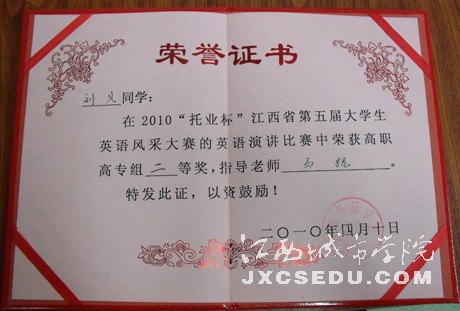 荣誉证书
刘 同学：
在2010“托业杯”江西省第五届大学生
英语风采大赛的英语演讲比赛中荣获高职
高专组二等奖，指导老师 马妮 。
特发此证，以资鼓励！
二〇一〇年四月十日
江西城市学院
JXCSEDU.COM